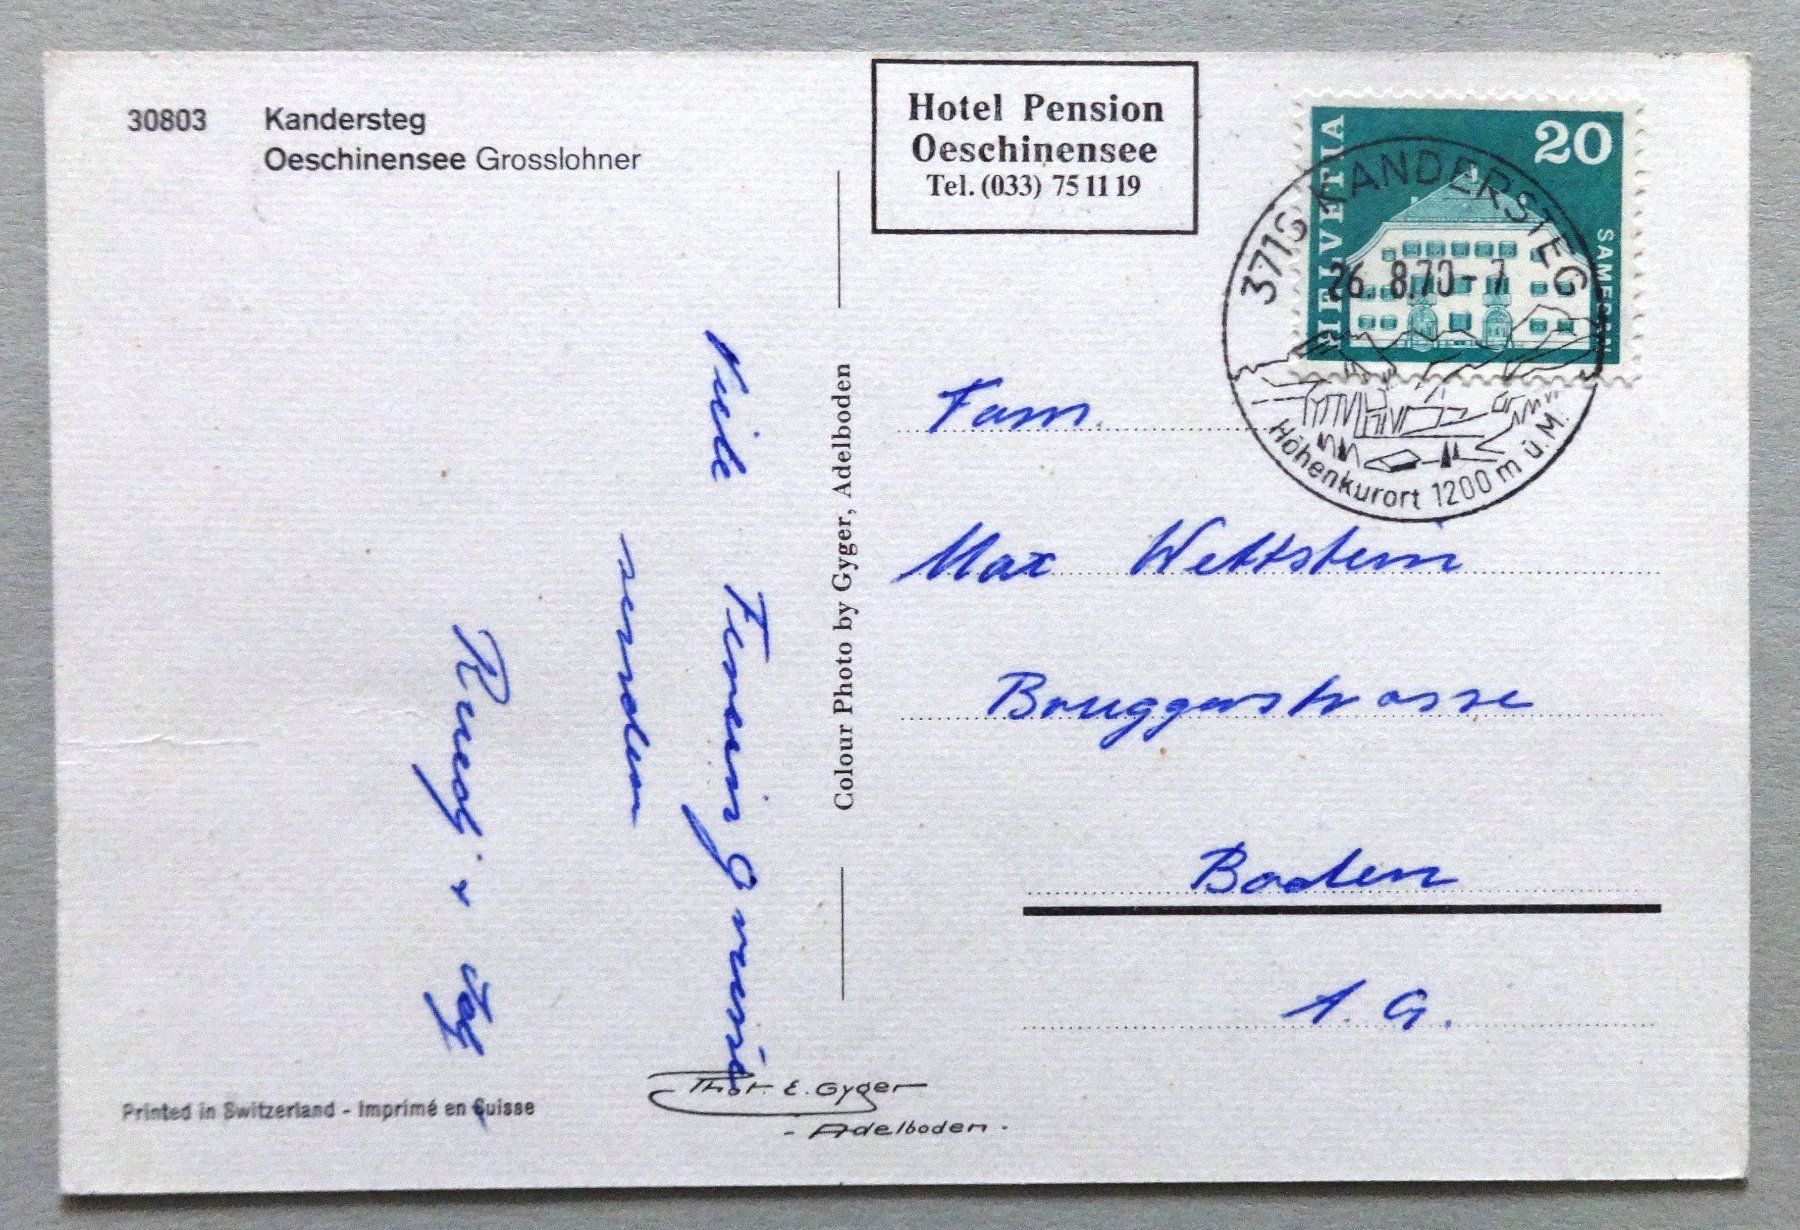 30803 Kandersteg
Oeschinensee Grosslohner
Hotel Pension
Oeschinensee
Tel. (033) 75 11 19
HELVETIA
20
3718 KANDERSTEG
26. 8.70 - 7
Höhenkurort 1200 m ü. M.
Viele Feriengrüsse
senden
Ruedi +
Colour Photo by Gyger, Adelboden
Fam.
Max Wettstein
Bruggerstrasse
Baden
A. G.
Printed in Switzerland - Imprimé en Suisse
Phot. E. Gyger
- Adelboden -